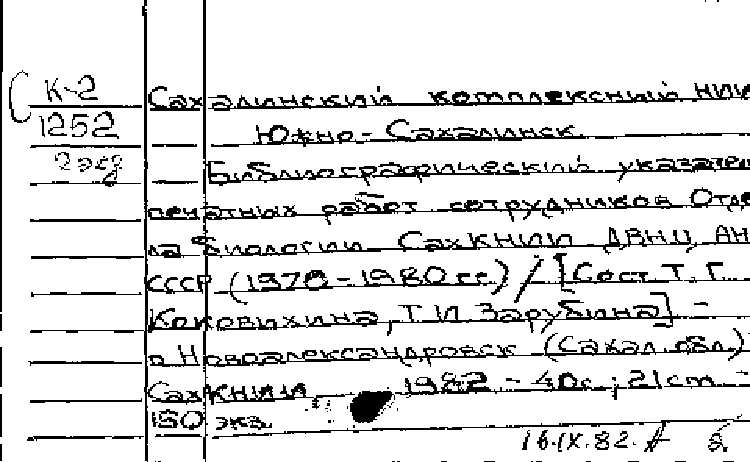 К-2
Сахалинский комплексный НИИ
1252
Южно-Сахалинск
2 экз
Библиографический указател
печатных работ сотрудников Отде
ла биологии СахКНИИ ДВНЦ АН
СССР (1978-1980 гг.) / [Сост. Т. Г.
Коковихина, Т. И. Зарубина] -
п. Новоалександровск (Сахал. обл.)
СахКНИИ 1982 - 40 с.; 21 cm -
150 экз.
16.IX.82.